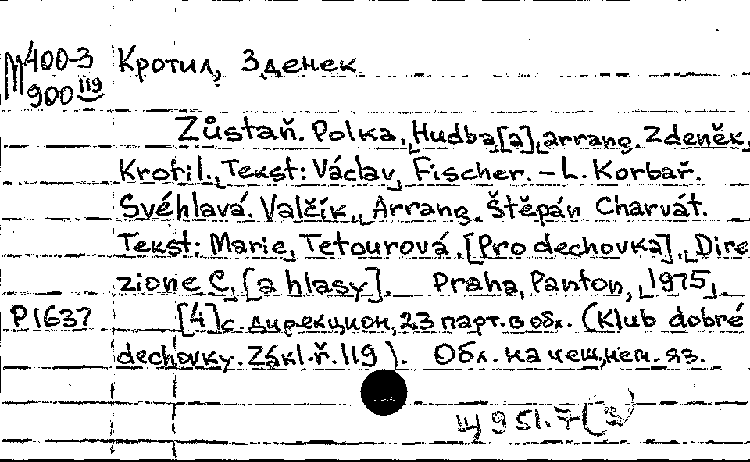 М400-3 Кротил, Зденек
900 119
Zůstaň. Polka. Hudba [a] arrang. Zdeněk
Krotil. Tekst: Václav Fischer. – L. Korbař.
Svéhlavá. Valčík. Arrang. Štěpán Charvát.
Tekst: Marie Tetourová. [Pro dechovka]. Dire
zione C. [a hlasy]. Praha, Panton, 1975.
P1637 [4] с. дирекцион, 23 парт. в обл. (Klub dobré
dechovky. Zákl. ř. 119). Обл. на чеш, нем. яз.
Щ 951.7